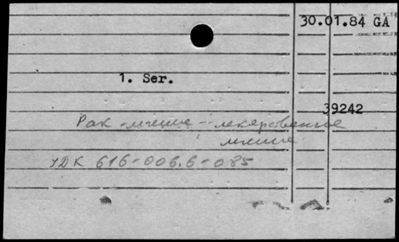 30.01.84 GA
1. Ser.
39242
Рак - мыши - лекарственные
мыши
УДК 616-006.6-085